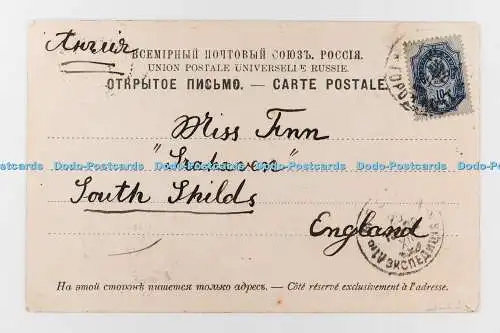 Англия
ВСЕМІРНЫЙ ПОЧТОВЫЙ СОЮЗЪ. РОССІЯ.
UNION POSTALE UNIVERSELLE RUSSIE.
ОТКРЫТОЕ ПИСЬМО. — CARTE POSTALE.
10
Miss Finn
Dodo-Postcards Dodo-Postcards Dodo-Postcards Dodo-Postcards Dodo-Postcards
South Shilds
England
ЭКСПЕДИЦІЯ
На этой сторонѣ пишется только адресъ. — Côté réservé exclusivement à l'adresse.